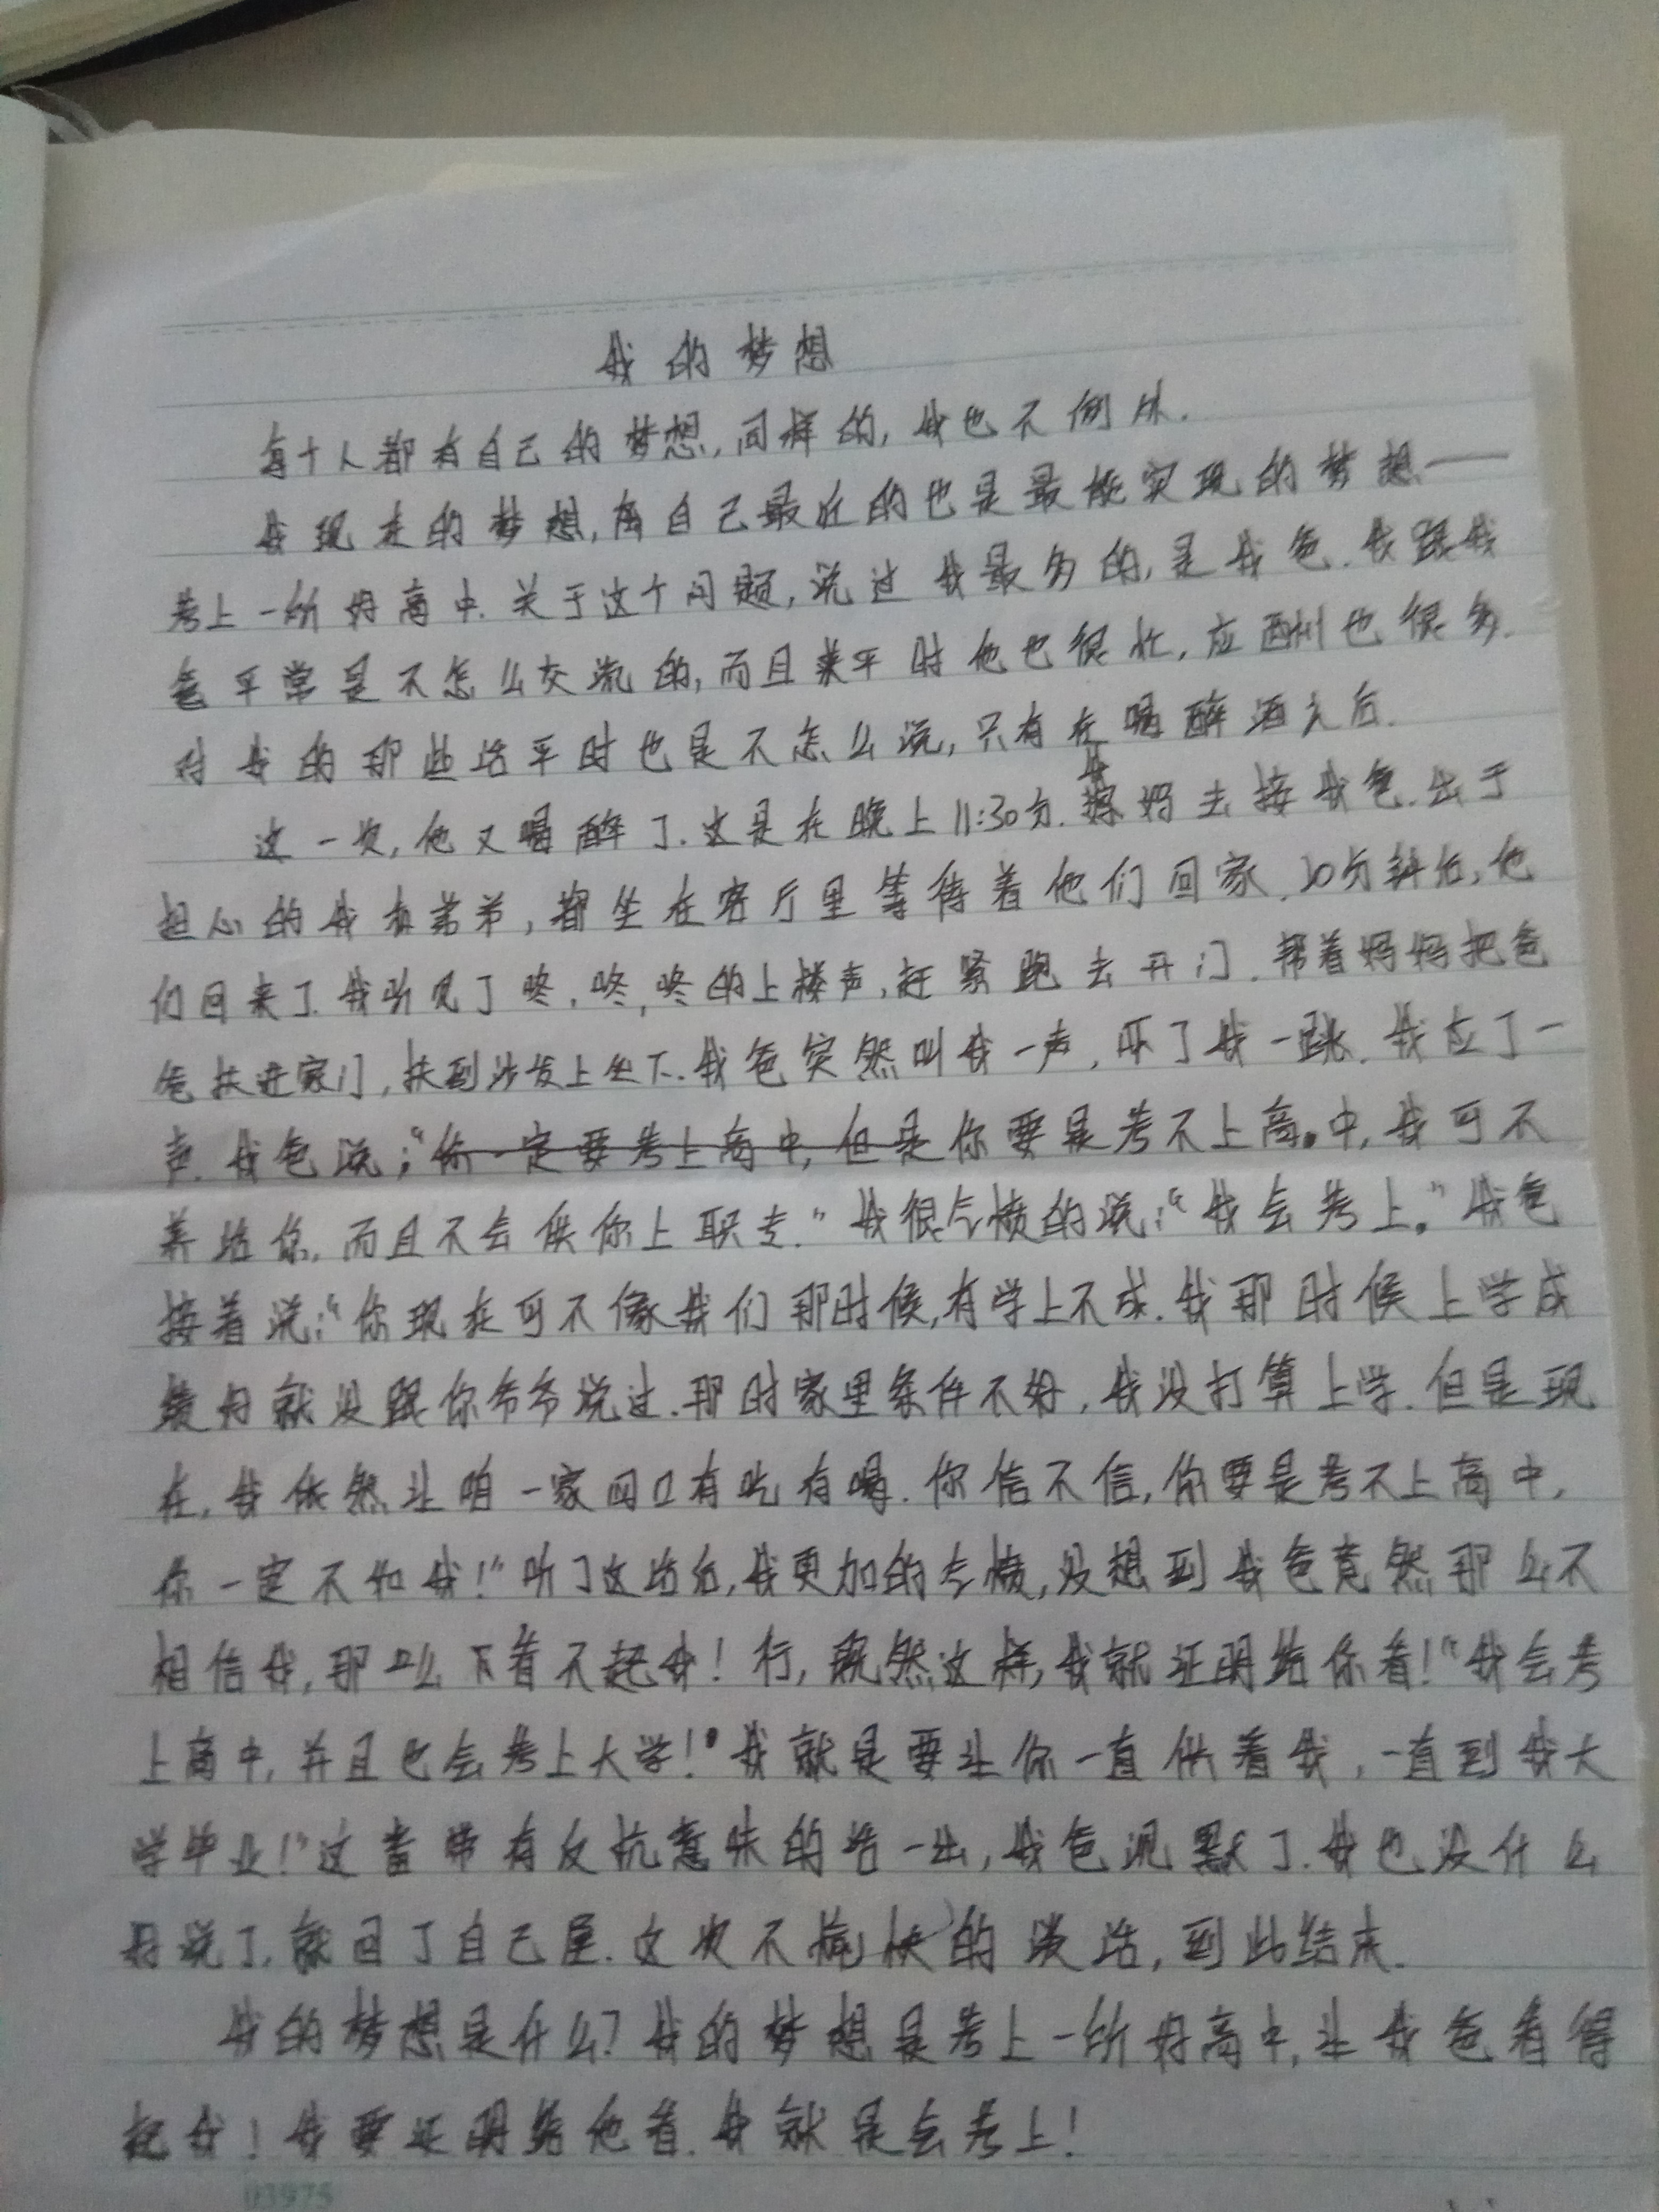 我的梦想
每个人都有自己的梦想,同样的,我也不例外.
我现在的梦想,离自己最近的也是最能实现的梦想——
考上一所好高中.关于这个问题,说过我最多的,是我爸.我跟我
爸平常是不怎么交流的,而且平时他也很忙,应酬也很多.
对我的那些话平时也是不怎么说,只有在喝醉酒之后.
这一次,他又喝醉了.这是在晚上11:30分.我妈去接我爸.出于
担心的我和弟弟,都坐在客厅里等待着他们回家.20分钟后,他
们回来了.我听见了咚,咚,咚的上楼声,赶紧跑去开门.帮着妈妈把爸
爸扶进家门,扶到沙发上坐下.我爸突然叫我一声,吓了我一跳.我应了一
声.我爸说:“你一定要考上高中,但是你要是考不上高中,我可不
养活你.而且不会供你上职专.”我很气愤的说:“我会考上。”我爸
接着说:“你现在可不像我们那时候,有学上不成.我那时候上学成
绩好就没跟你爷爷说过.那时家里条件不好,我没打算上学.但是现
在,我依然让咱一家四口有吃有喝.你信不信,你要是考不上高中,
你一定不如我!”听了这话后,我更加的气愤,没想到我爸竟然那么不
相信我,那么看不起我!行,既然这样,我就证明给你看!“我会考
上高中,并且也会考上大学!我就是要让你一直供着我,一直到我大
学毕业!”这番带有反抗意味的话一出,我爸沉默了.我也没什么
好说了,就回了自己屋.这次不愉快的谈话,到此结束.
我的梦想是什么?我的梦想是考上一所好高中,让我爸看得
起我!我要证明给他看.我就是会考上!
03975